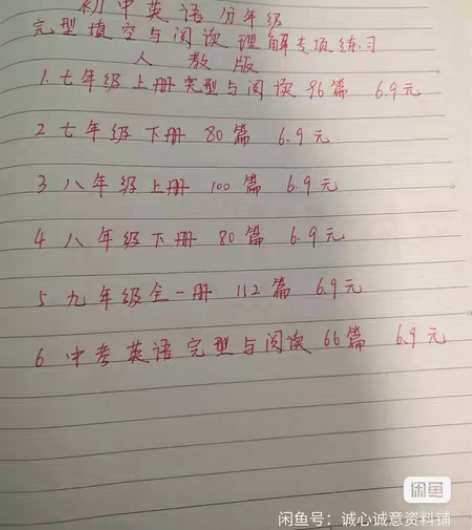 初中英语分年级
完型填空与阅读理解专项练习
人教版
1.七年级上册完型与阅读 96篇 6.9元
2 七年级下册 80篇 6.9元
3 八年级上册 100篇 6.9元
4 八年级下册 80篇 6.9元
5 九年级全一册 112篇 6.9元
6 中考英语完型与阅读 66篇 6.9元
闲鱼
闲鱼号：诚心诚意资料铺